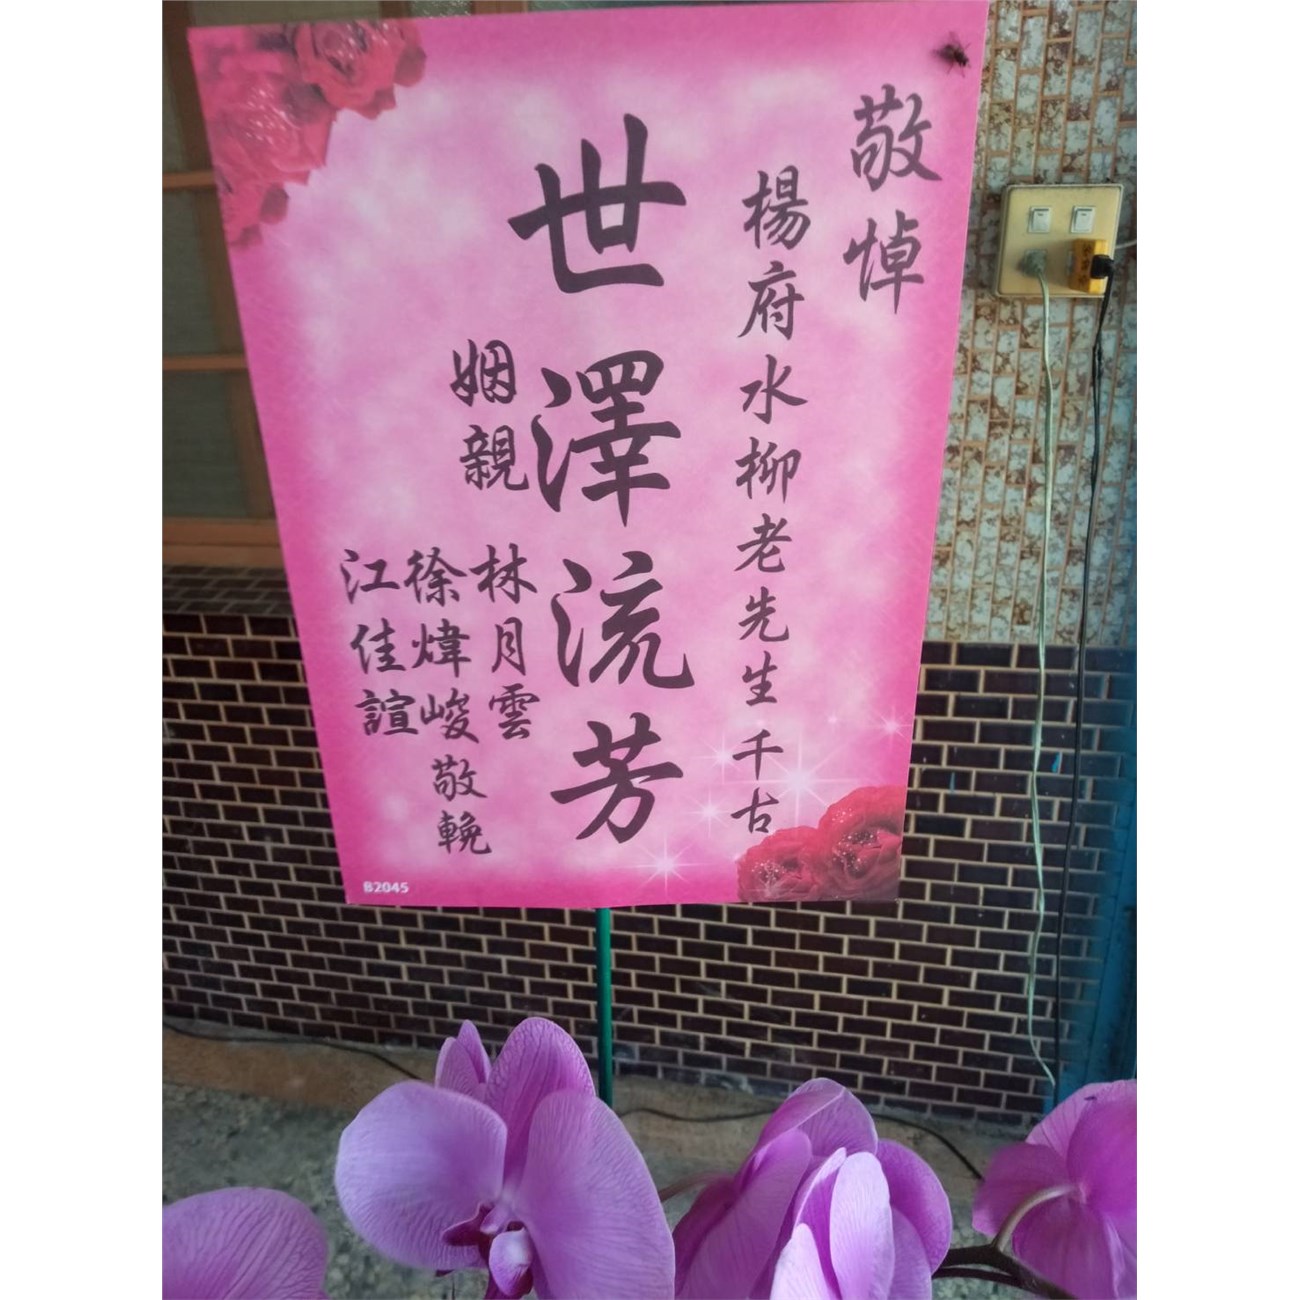 敬悼
楊府水柳老先生千古
世澤流芳
姻親
林月雲
徐煒峻敬輓
江佳諠
B2045